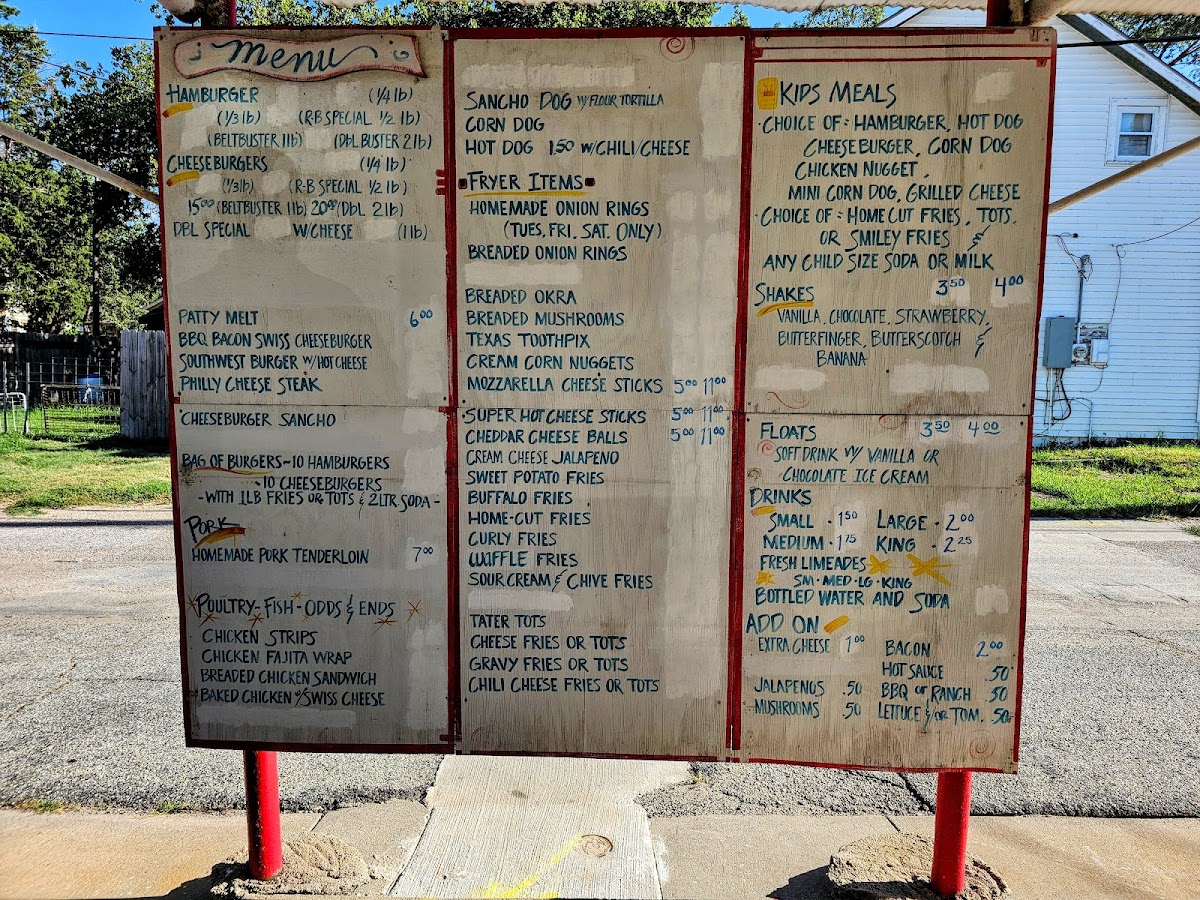 Menu
HAMBURGER (1/4 lb)
(1/3 lb) (R-B SPECIAL 1/2 lb)
(BELTBUSTER 1 lb) (DbL BUSTER 2 lb)
CHEESEBURGERS (1/4 lb)
(1/3 lb) (R-B SPECIAL 1/2 lb)
15⁰⁰ (BELTBUSTER 1 lb) 20⁰⁰ (DbL 2 lb)
DBL SPECIAL W/CHEESE (1 lb)
PATTY MELT 6⁰⁰
BBQ BACON SWISS CHEESEBURGER
SOUTHWEST BURGER W/HOT CHEESE
PHILLY CHEESE STEAK
CHEESEBURGER SANCHO
BAG OF BURGERS~10 HAMBURGERS
~10 CHEESEBURGERS
-WITH 1LB FRIES OR TOTS & 2LTR SODA-
PORK
HOMEMADE PORK TENDERLOIN 7⁰⁰
POULTRY-FISH-ODDS & ENDS
CHICKEN STRIPS
CHICKEN FAJITA WRAP
BREADED CHICKEN SANDWICH
BAKED CHICKEN W/SWISS CHEESE
SANCHO DOG W/FLOUR TORTILLA
CORN DOG
HOT DOG 1.50 W/CHILI/CHEESE
FRYER ITEMS
HOMEMADE ONION RINGS
(TUES, FRI, SAT. ONLY)
BREADED ONION RINGS
BREADED OKRA
BREADED MUSHROOMS
TEXAS TOOTHPIX
CREAM CORN NUGGETS
MOZZARELLA CHEESE STICKS 5⁰⁰ 11⁰⁰
SUPER HOT CHEESE STICKS 5⁰⁰ 11⁰⁰
CHEDDAR CHEESE BALLS 5⁰⁰ 11⁰⁰
CREAM CHEESE JALAPENO
SWEET POTATO FRIES
BUFFALO FRIES
HOME-CUT FRIES
CURLY FRIES
WAFFLE FRIES
SOUR CREAM & CHIVE FRIES
TATER TOTS
CHEESE FRIES OR TOTS
GRAVY FRIES OR TOTS
CHILI CHEESE FRIES OR TOTS
KIDS MEALS
·CHOICE OF: HAMBURGER, HOT DOG
CHEESEBURGER, CORN DOG
CHICKEN NUGGET,
MINI CORN DOG, GRILLED CHEESE
·CHOICE OF: HOME CUT FRIES, TOTS,
OR SMILEY FRIES &
ANY CHILD SIZE SODA OR MILK
SHAKES 3⁵⁰ 4⁰⁰
VANILLA, CHOCOLATE, STRAWBERRY,
BUTTERFINGER, BUTTERSCOTCH &
BANANA
FLOATS 3⁵⁰ 4⁰⁰
SOFT DRINK W/ VANILLA OR
CHOCOLATE ICE CREAM
DRINKS
SMALL · 1⁵⁰ LARGE · 2⁰⁰
MEDIUM · 1⁷⁵ KING · 2²⁵
FRESH LIMEADES
SM · MED · LG · KING
BOTTLED WATER AND SODA
ADD ON
EXTRA CHEESE 1⁰⁰ BACON 2⁰⁰
HOT SAUCE .50
JALAPENOS .50 BBQ OR RANCH .50
MUSHROOMS .50 LETTUCE &/OR TOM. .50